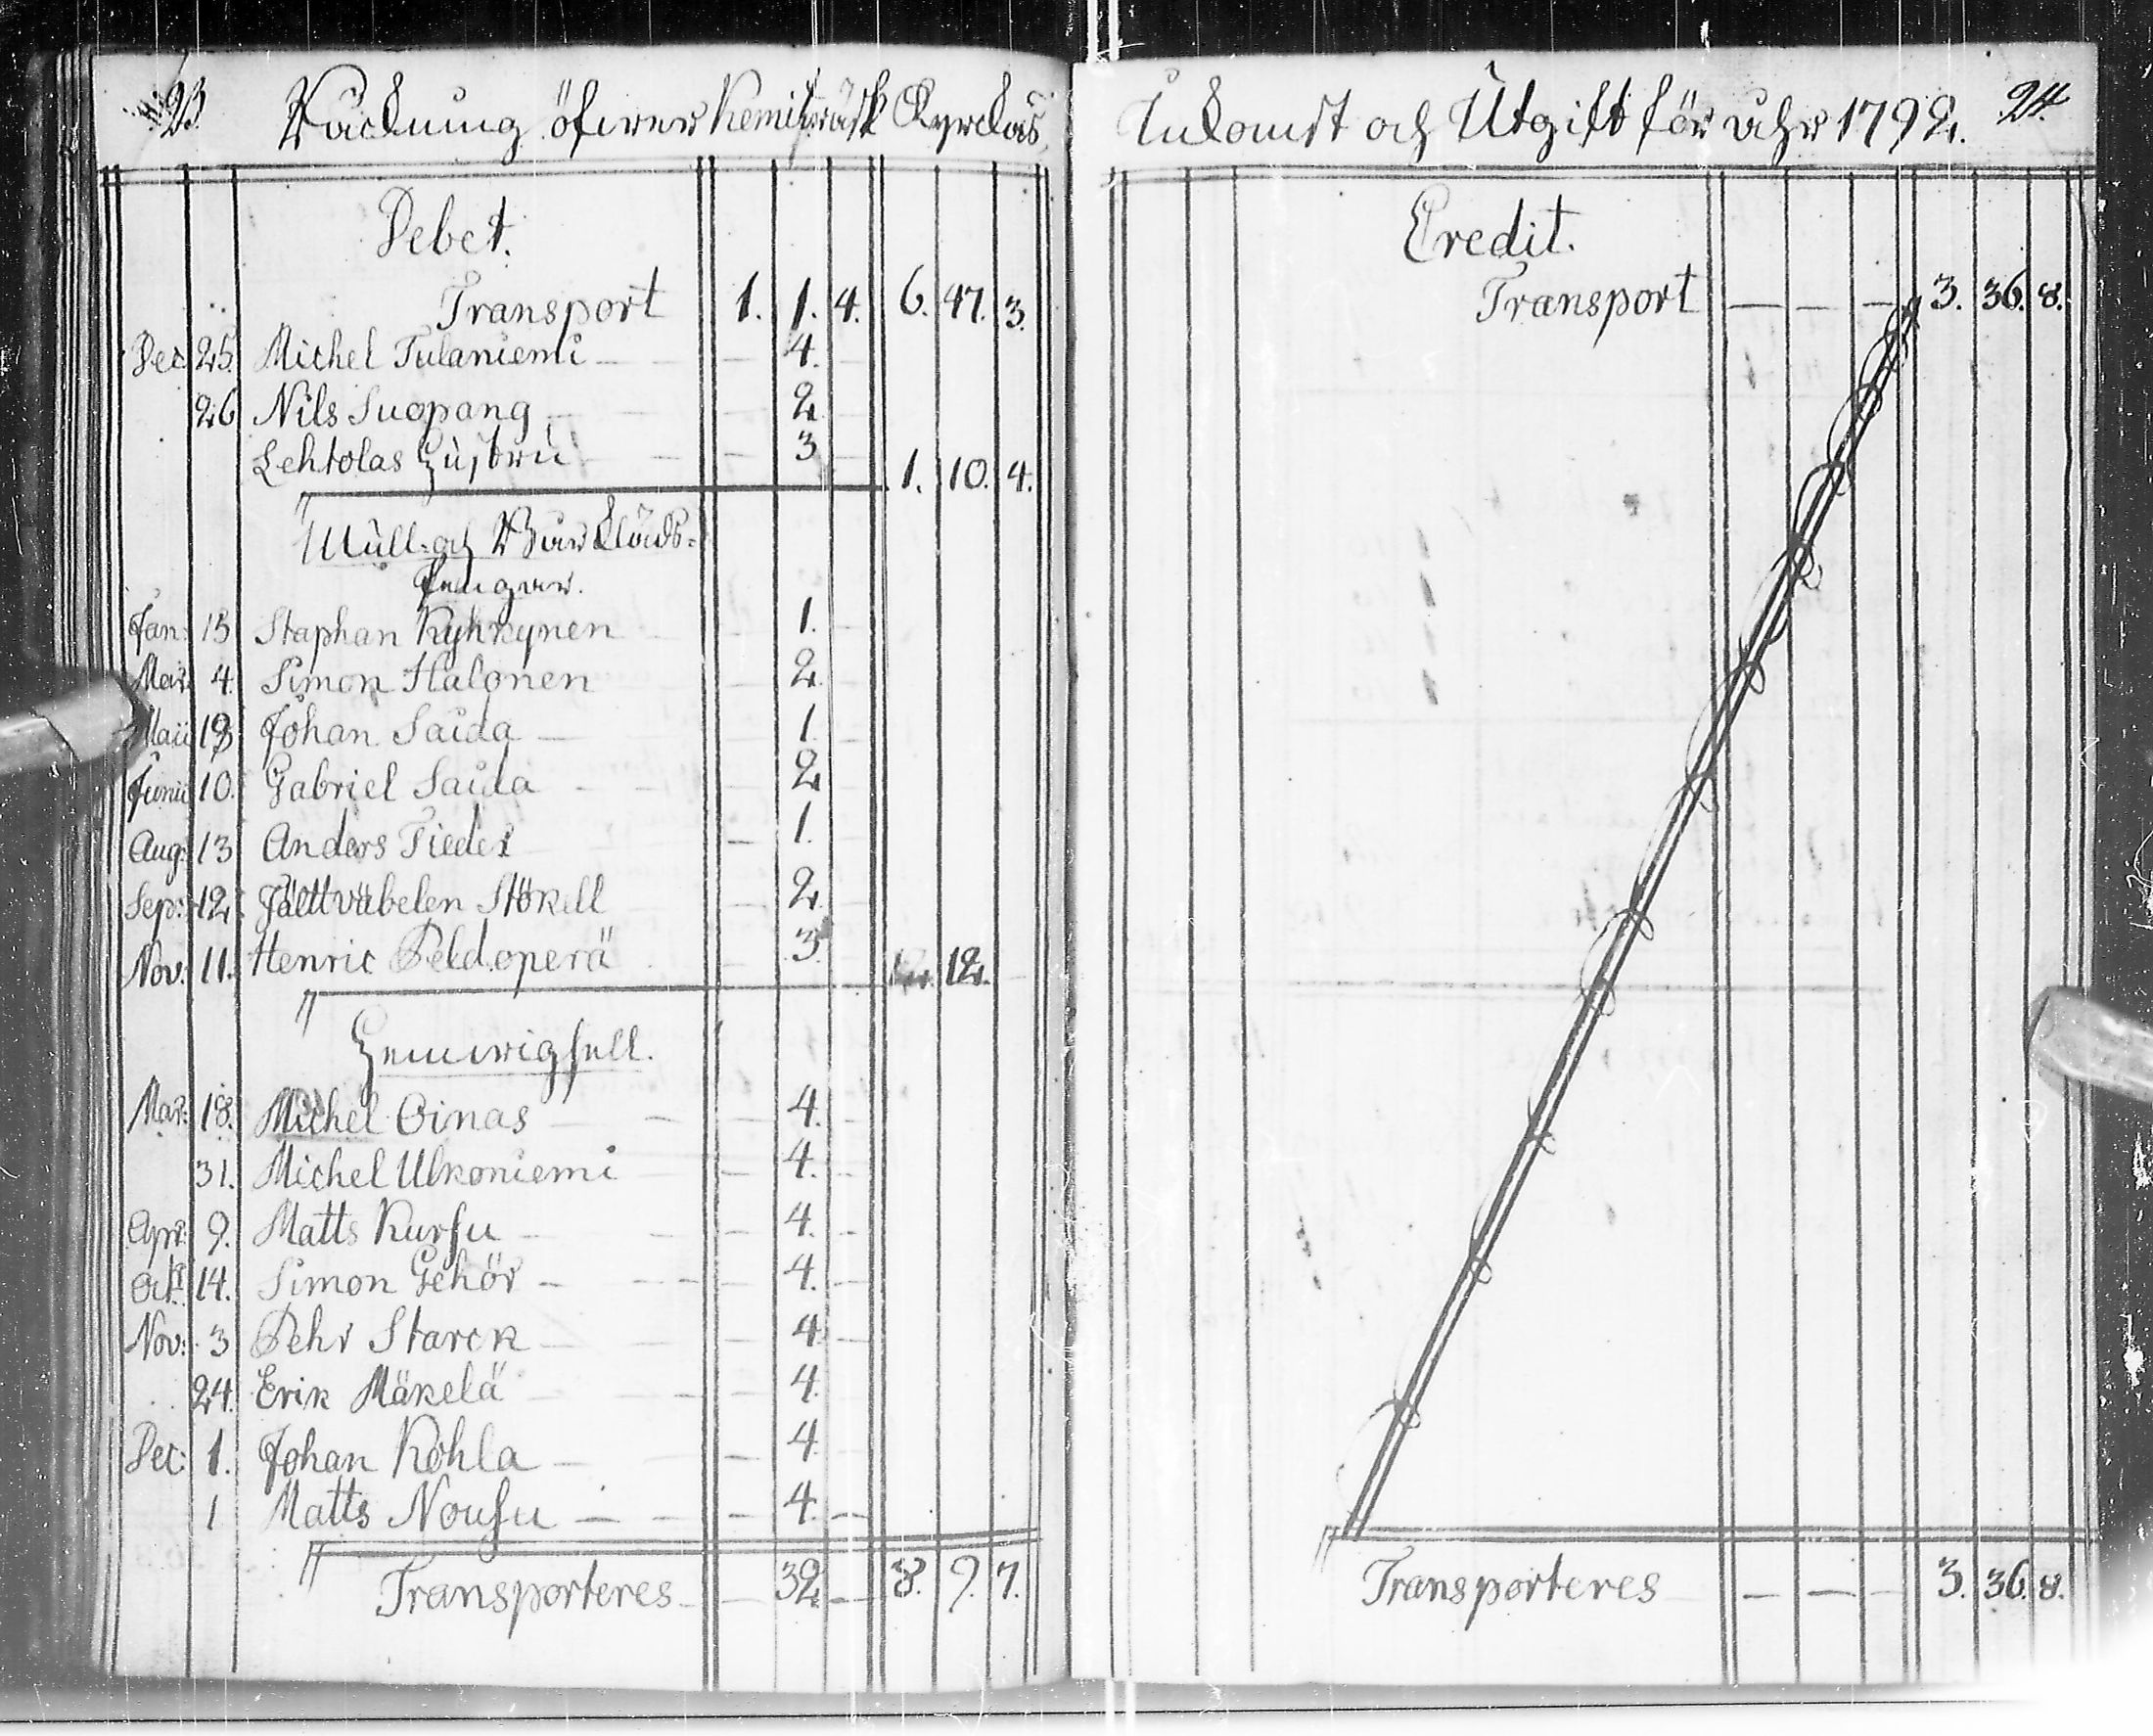 23 Räckning öfwer Kemiträsk Kyrckas
Debet.
Transport 1. 1. 4. 6. 47. 3.
Dec 25. Michel Tulaniemi — — 4. —
26 Nils Suopang — — 2 —
Lehtolas Hustru — — 3 — 1. 10. 4.
Mull- och Bårklädes-
Pengar.
Jan: 15 Staphan Kyhkynen — 1. —
Mar. 4. Simon Halonen — 2. —
Maii 13 Johan Saida — 1.
Junii 10. Gabriel Saida — — 2
Aug: 13 Anders Fieder — 1.
Sep: 12. Fältväbelen Stökell — 2. —
Nov: 11. Henric Peldoperä — 3. 12. —
Hemwigsell.
Mar: 18. Michel Oinas — — 4. —
31. Michel Ulkoniemi — 4. —
Apr: 9. Matts Kursu — — 4. —
Oct. 14. Simon Gehör — — 4. —
Nov: 3 Pehr Starck — — 4. —
24. Erik Mäkelä — — 4.
Dec: 1. Johan Kohla — — 4.
1 Matts Nousu — — 4. —
Transporteres — 32. — 8. 9. 7.
Inkomst och Utgift för åhr 1792. 24.
Credit.
Transport — — — 3. 36. 8.
Transporteres — — — 3. 36. 8.